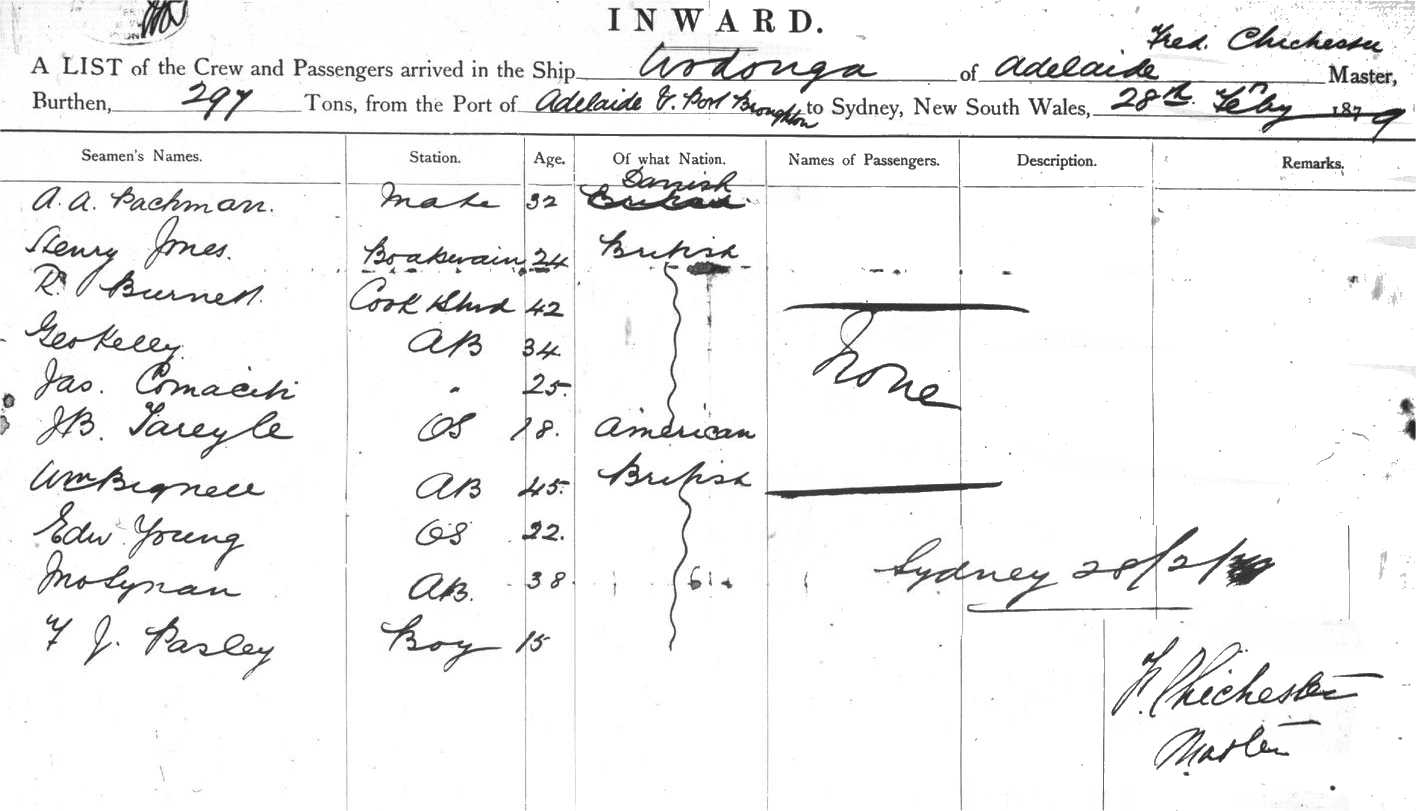 INWARD.
Fred. Chichester
A LIST of the Crew and Passengers arrived in the Ship Wodonga of Adelaide Master,
Burthen, 297 Tons, from the Port of Adelaide & Port Broughton to Sydney, New South Wales, 28th Feby 1879
Seamen's Names. Station. Age. Of what Nation. Names of Passengers. Description. Remarks.
Danish
A. A. Pachman. Mate 32 British
Henry Jones. Boatswain 24 British
Rt Burnett. Cook & Stwd 42
Geo Kelly AB 34
None
Jas. " 25
JB. OS 18. American
Wm Bignell AB 45. British
Edw Young OS 22.
Jno Lynan AB. 38
Sydney 28/2/
F J. Pasley Boy 15
F. Chichester
Master